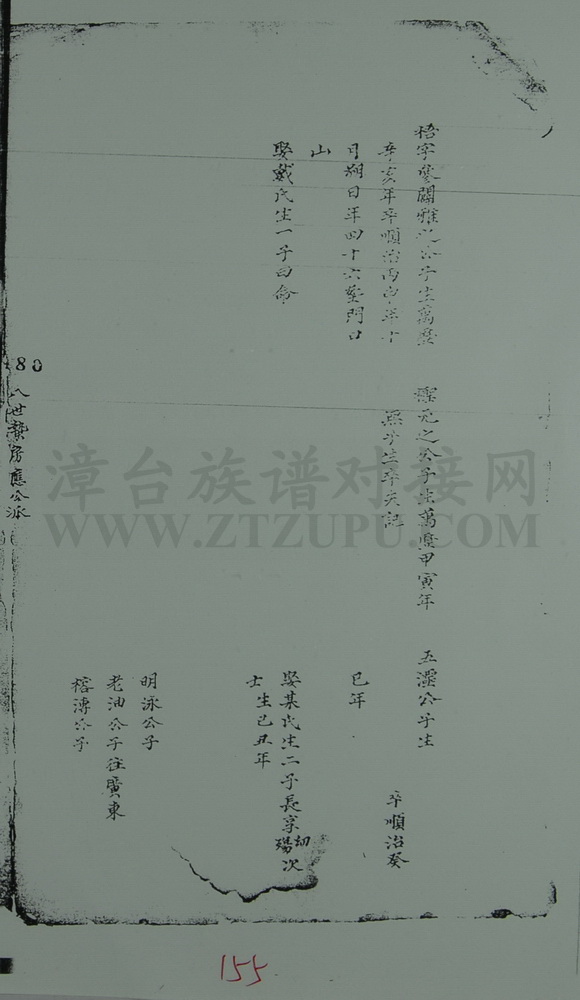 梧字參闗雅以公子生萬歷
辛亥年卒順治丙申年十
月朔日年四十六塟門口
山
娶戴氏生一子曰命
元之公子生萬歷甲寅年
無子生卒失記
玉澤公子生
卒順治癸
巳年
娶某氏生二子長宗錫幼次
士生己丑年
明泳公子
老油公子往廣東
榕溥公子
80
八世贊房應公派
漳台族谱对接网
WWW.ZTZUPU.COM
155